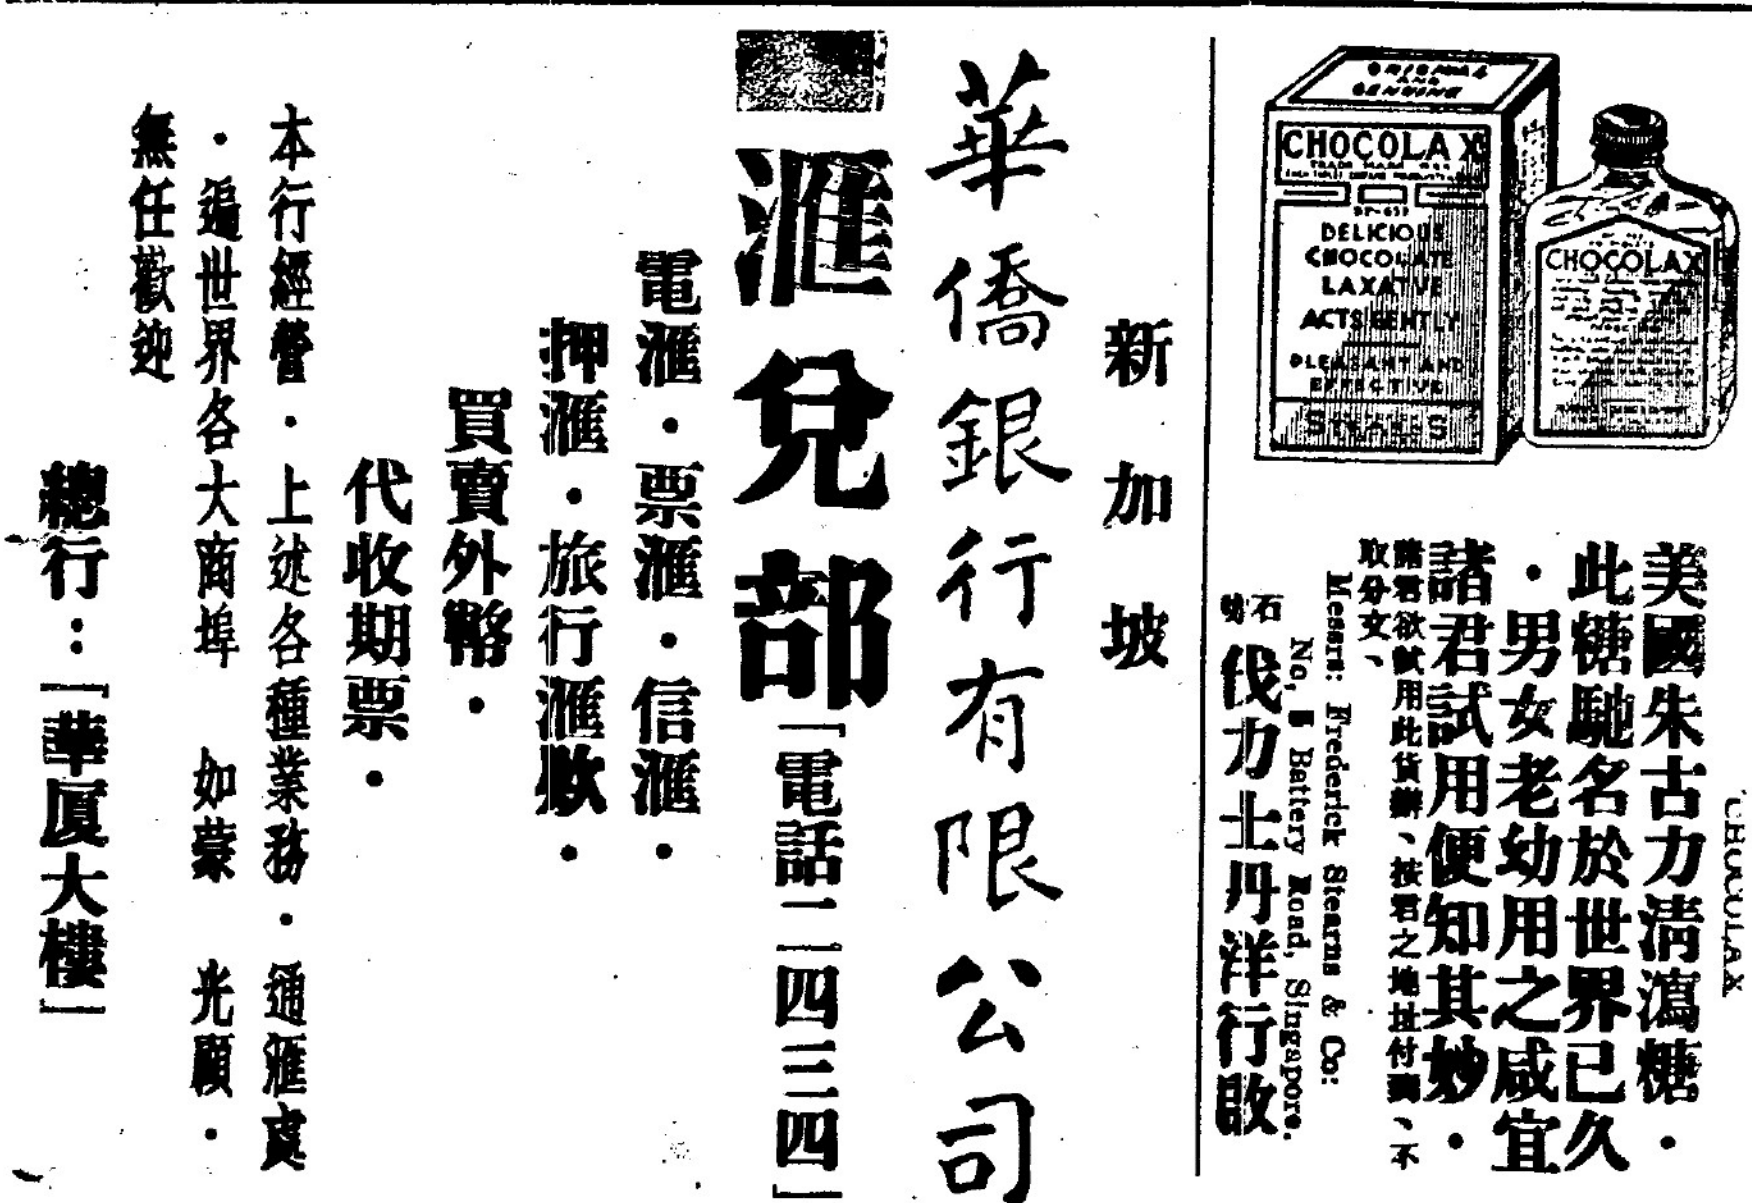 ORIGINAL
AND
GENUINE
CHOCOLAX
TRADE MARK
DELICIOUS
CHOCOLATE
LAXATIVE
ACTS GENTLY
PLEASANT AND
EFFECTIVE
CHOCOLAX
CHOCOLAX
美國朱古力清瀉糖・
此糖馳名於世界已久
・男女老幼用之咸宜
諸君試用便知其妙・
諸君欲試用此貨辦、按君之地址付郵、不
取分文、
Messrs: Frederick Stearns & Co:
No, 5 Battery Road, Singapore.
石叻 伐力士丹洋行啟
新加坡
華僑銀行有限公司
滙兌部「電話二四三四」
電滙・票滙・信滙・
押滙・旅行滙欵・
買賣外幣・
代收期票・
本行經營・上述各種業務・通滙處
・遍世界各大商埠 如蒙 光顧・
無任歡迎
總行：「華厦大樓」